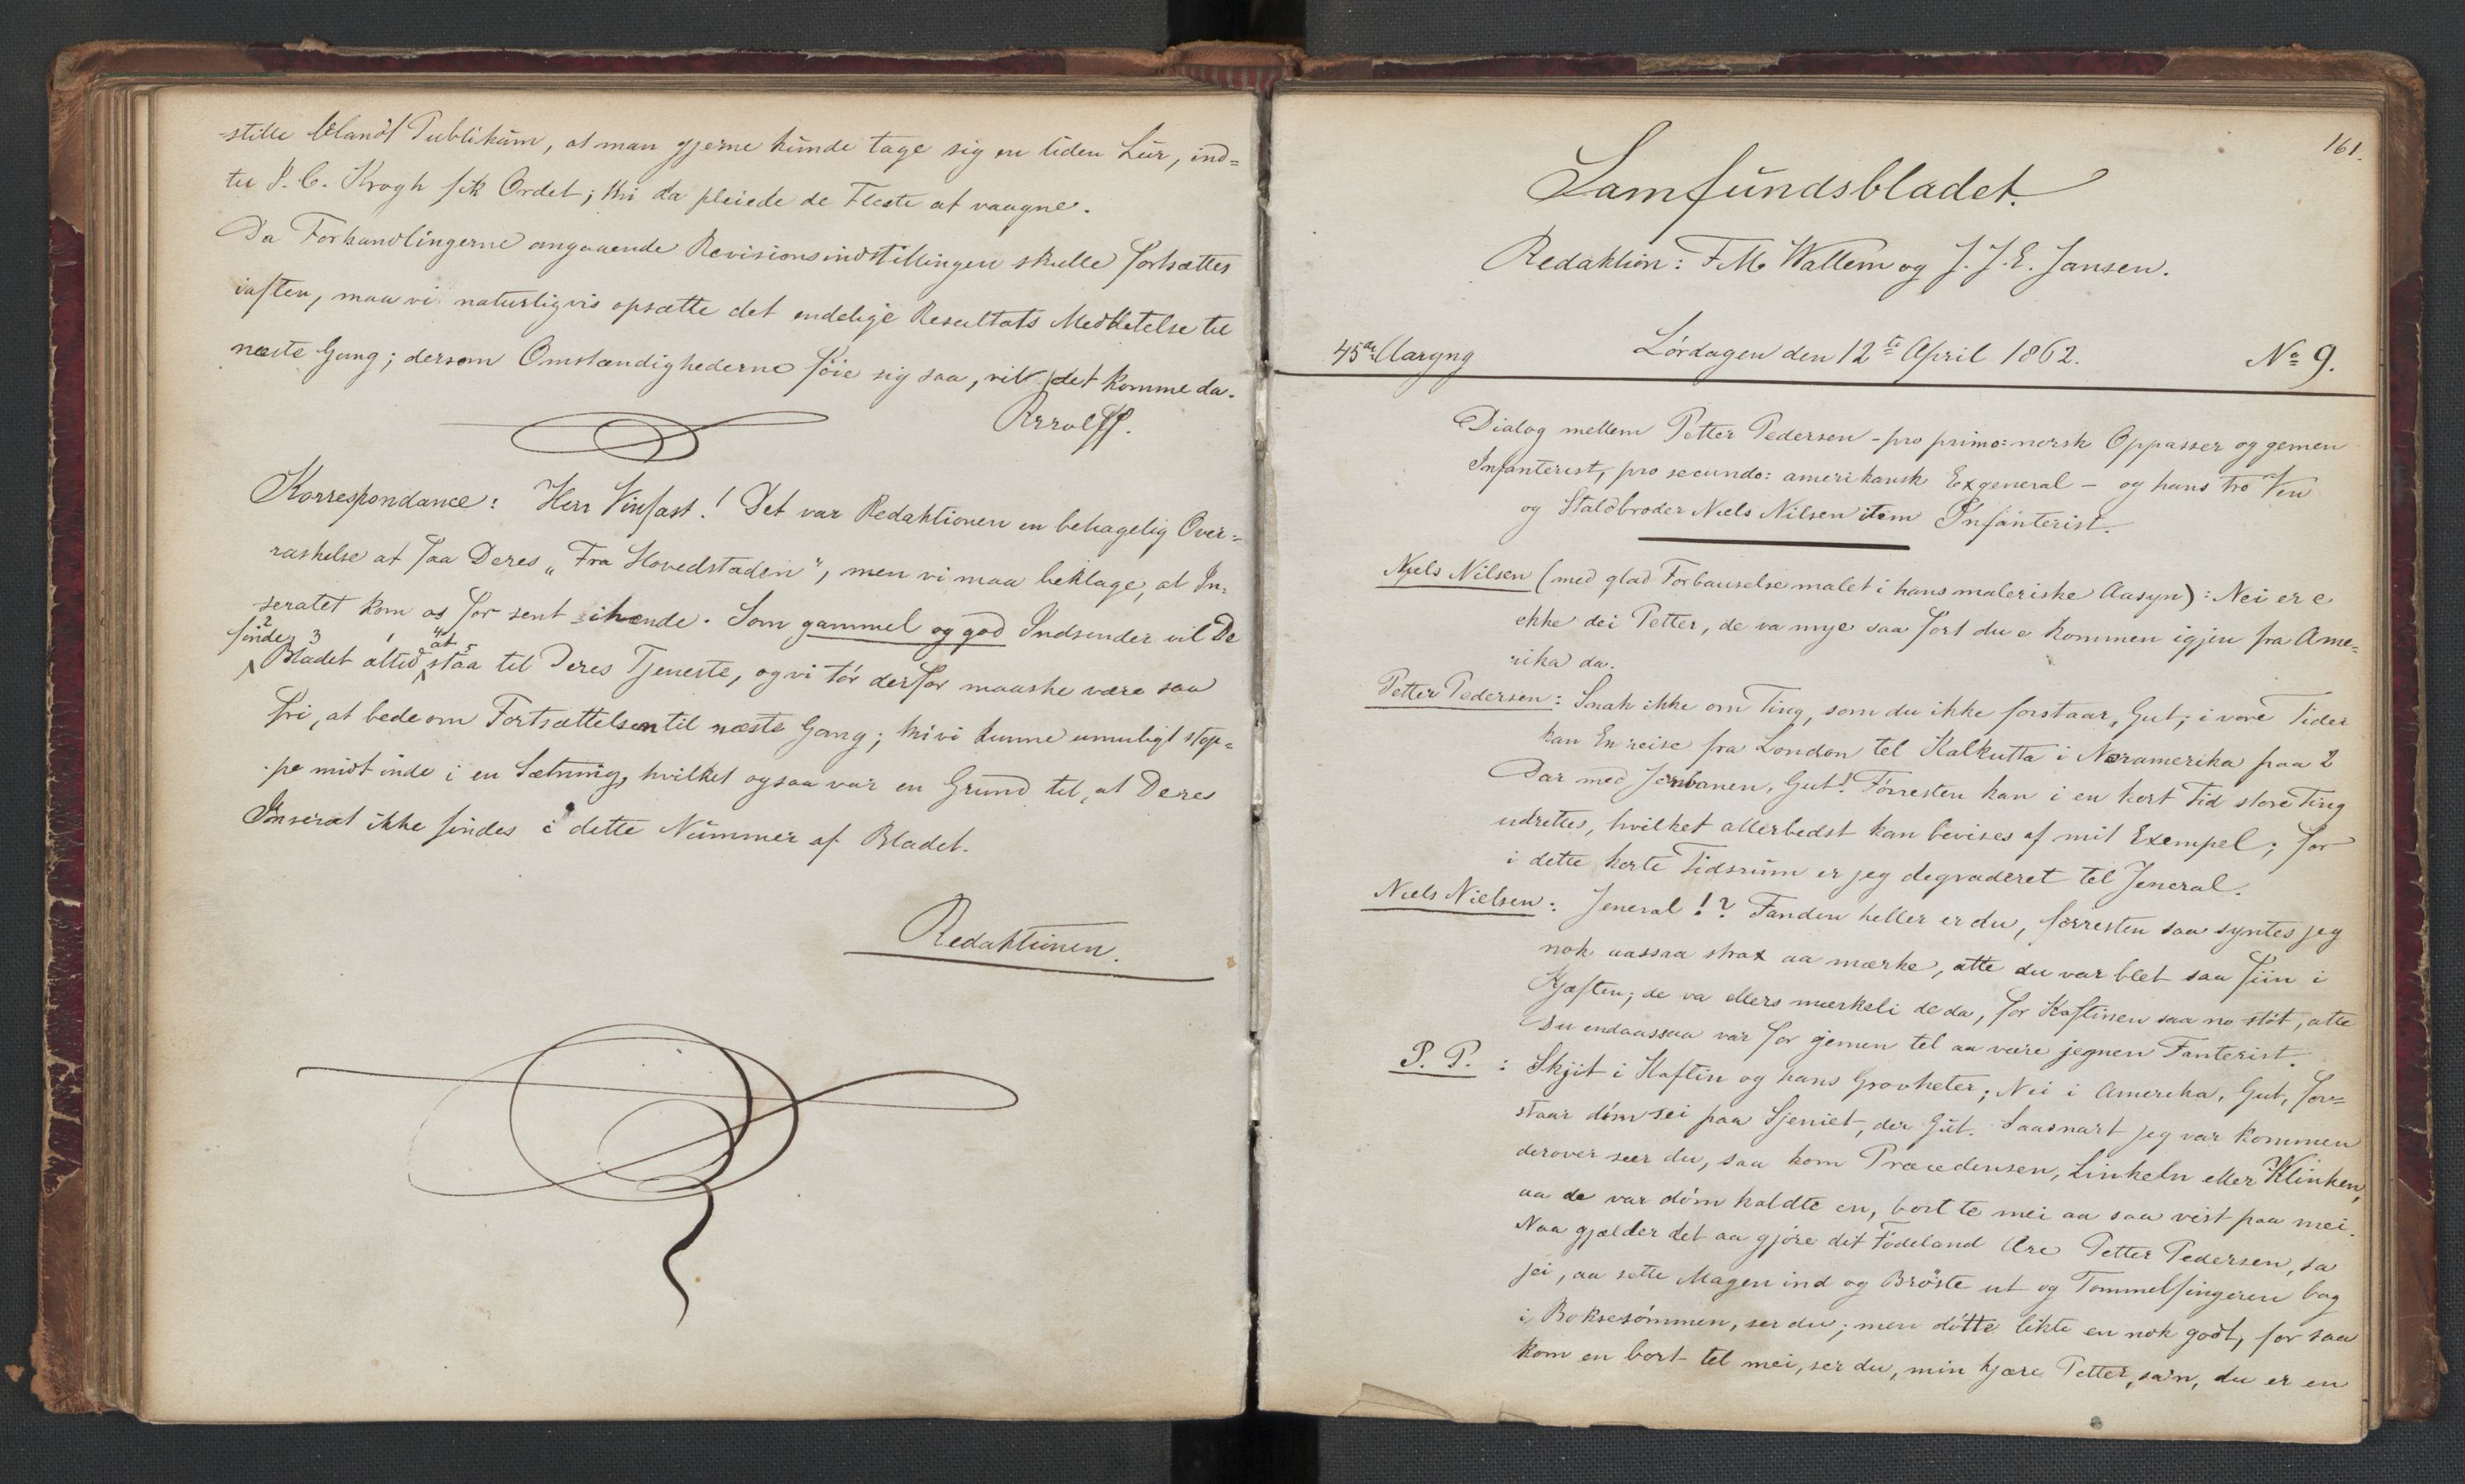 -stille blandt Publikum, at man gjerne kunde tage sig en liden Lur, ind=
til P. C. Krogh fik Ordet; thi da pleiede de Fleste at vaagne.
Da Forhandlingerne angaaende Revisionsindstillingen skulle fortsættes
iaften, maa vi naturligvis opsætte det endelige Resultats Meddelelse til
næste Gang; dersom Omstændighederne føie sig saa, vil det komme da.
Korrespondance: Herr Vinfast! Det var Redaktionen en behagelig Over=
raskelse at faa Deres „Fra Hovedstaden", men vi maa beklage, at In=
seratet kom os for sent ihænde. Som gammel og god Indsender vil De
finde 2 3 1 at 4 5
Bladet altid staa til Deres Tjeneste, og vi tør derfor maaske være saa
fri, at bede om Fortsættelsen til næste Gang; thi vi kunne umuligt stop=
pe midt inde i en Sætning, hvilket ogsaa var en Grund til, at Deres
Inserat ikke findes i dette Nummer af Bladet.
Redaktionen.
161.
Samfundsbladet.
Redaktion: F. M. Wallem og J. J. E. Jansen.
45de Aargng Lørdagen den 12te April 1862. No 9.
Dialog mellem Petter Pedersen - pro primo: norsk Oppasser og gemen
Infanterist, pro secundo: amerikansk Exgeneral - og hans tro Ven
og Staldbroder Niels Nilsen item Infanterist.
Niels Nilsen (med glad Forbauselse malet i hans maleriske Aasyn): Nei er e
ekke dei Petter, de va mye saa fort du e kommen igjen fra Ame=
rika da.
Petter Pedersen: Snak ikke om Ting, som du ikke forstaar, Gut; i vore Tider
kan En reise fra London tel Kalkutta i Noramerika paa 2
Dar med Jernbanen, Gut! Forresten kan i en kort Tid store Ting
udrettes, hvilket allerbedst kan bevises af mit Exempel; for
i dette korte Tidsrum er jeg degraderet tel Jeneral.
Niels Nielsen: Jeneral!? Fanden heller er du, forresten saa syntes jeg
nok aassaa strax aa mærke, atte du var blet saa fiin i
Kjæften; de va ellers mærkeli de da, for Kaftinen saa no støt, atte
Du endaassaa var for gjemen tel aa være jegnen Fanterist.
P. P.: Skjit i Kaftin og hans Grovheter; Nei i Amerika, Gut, for=
staar døm sei paa Sjeniet, der Gut. Saasnart jeg var kommen
derover seer du, saa kom Præcedensen, Linkeln eller Klinken,
aa de var døm kaldte en, bort te mei aa saa vist paa mei.
Naa gjælder det aa gjøre dit Fødeland Ære Petter Pedersen, sa
jei, aa sette Magen ind og Brøste ut og Tommelfingeren bag
i Boksesømmen, ser du; men døtte likte en nok godt, for saa
kom en bort tel mei, ser du, min kjære Petter, sa'n, du er en